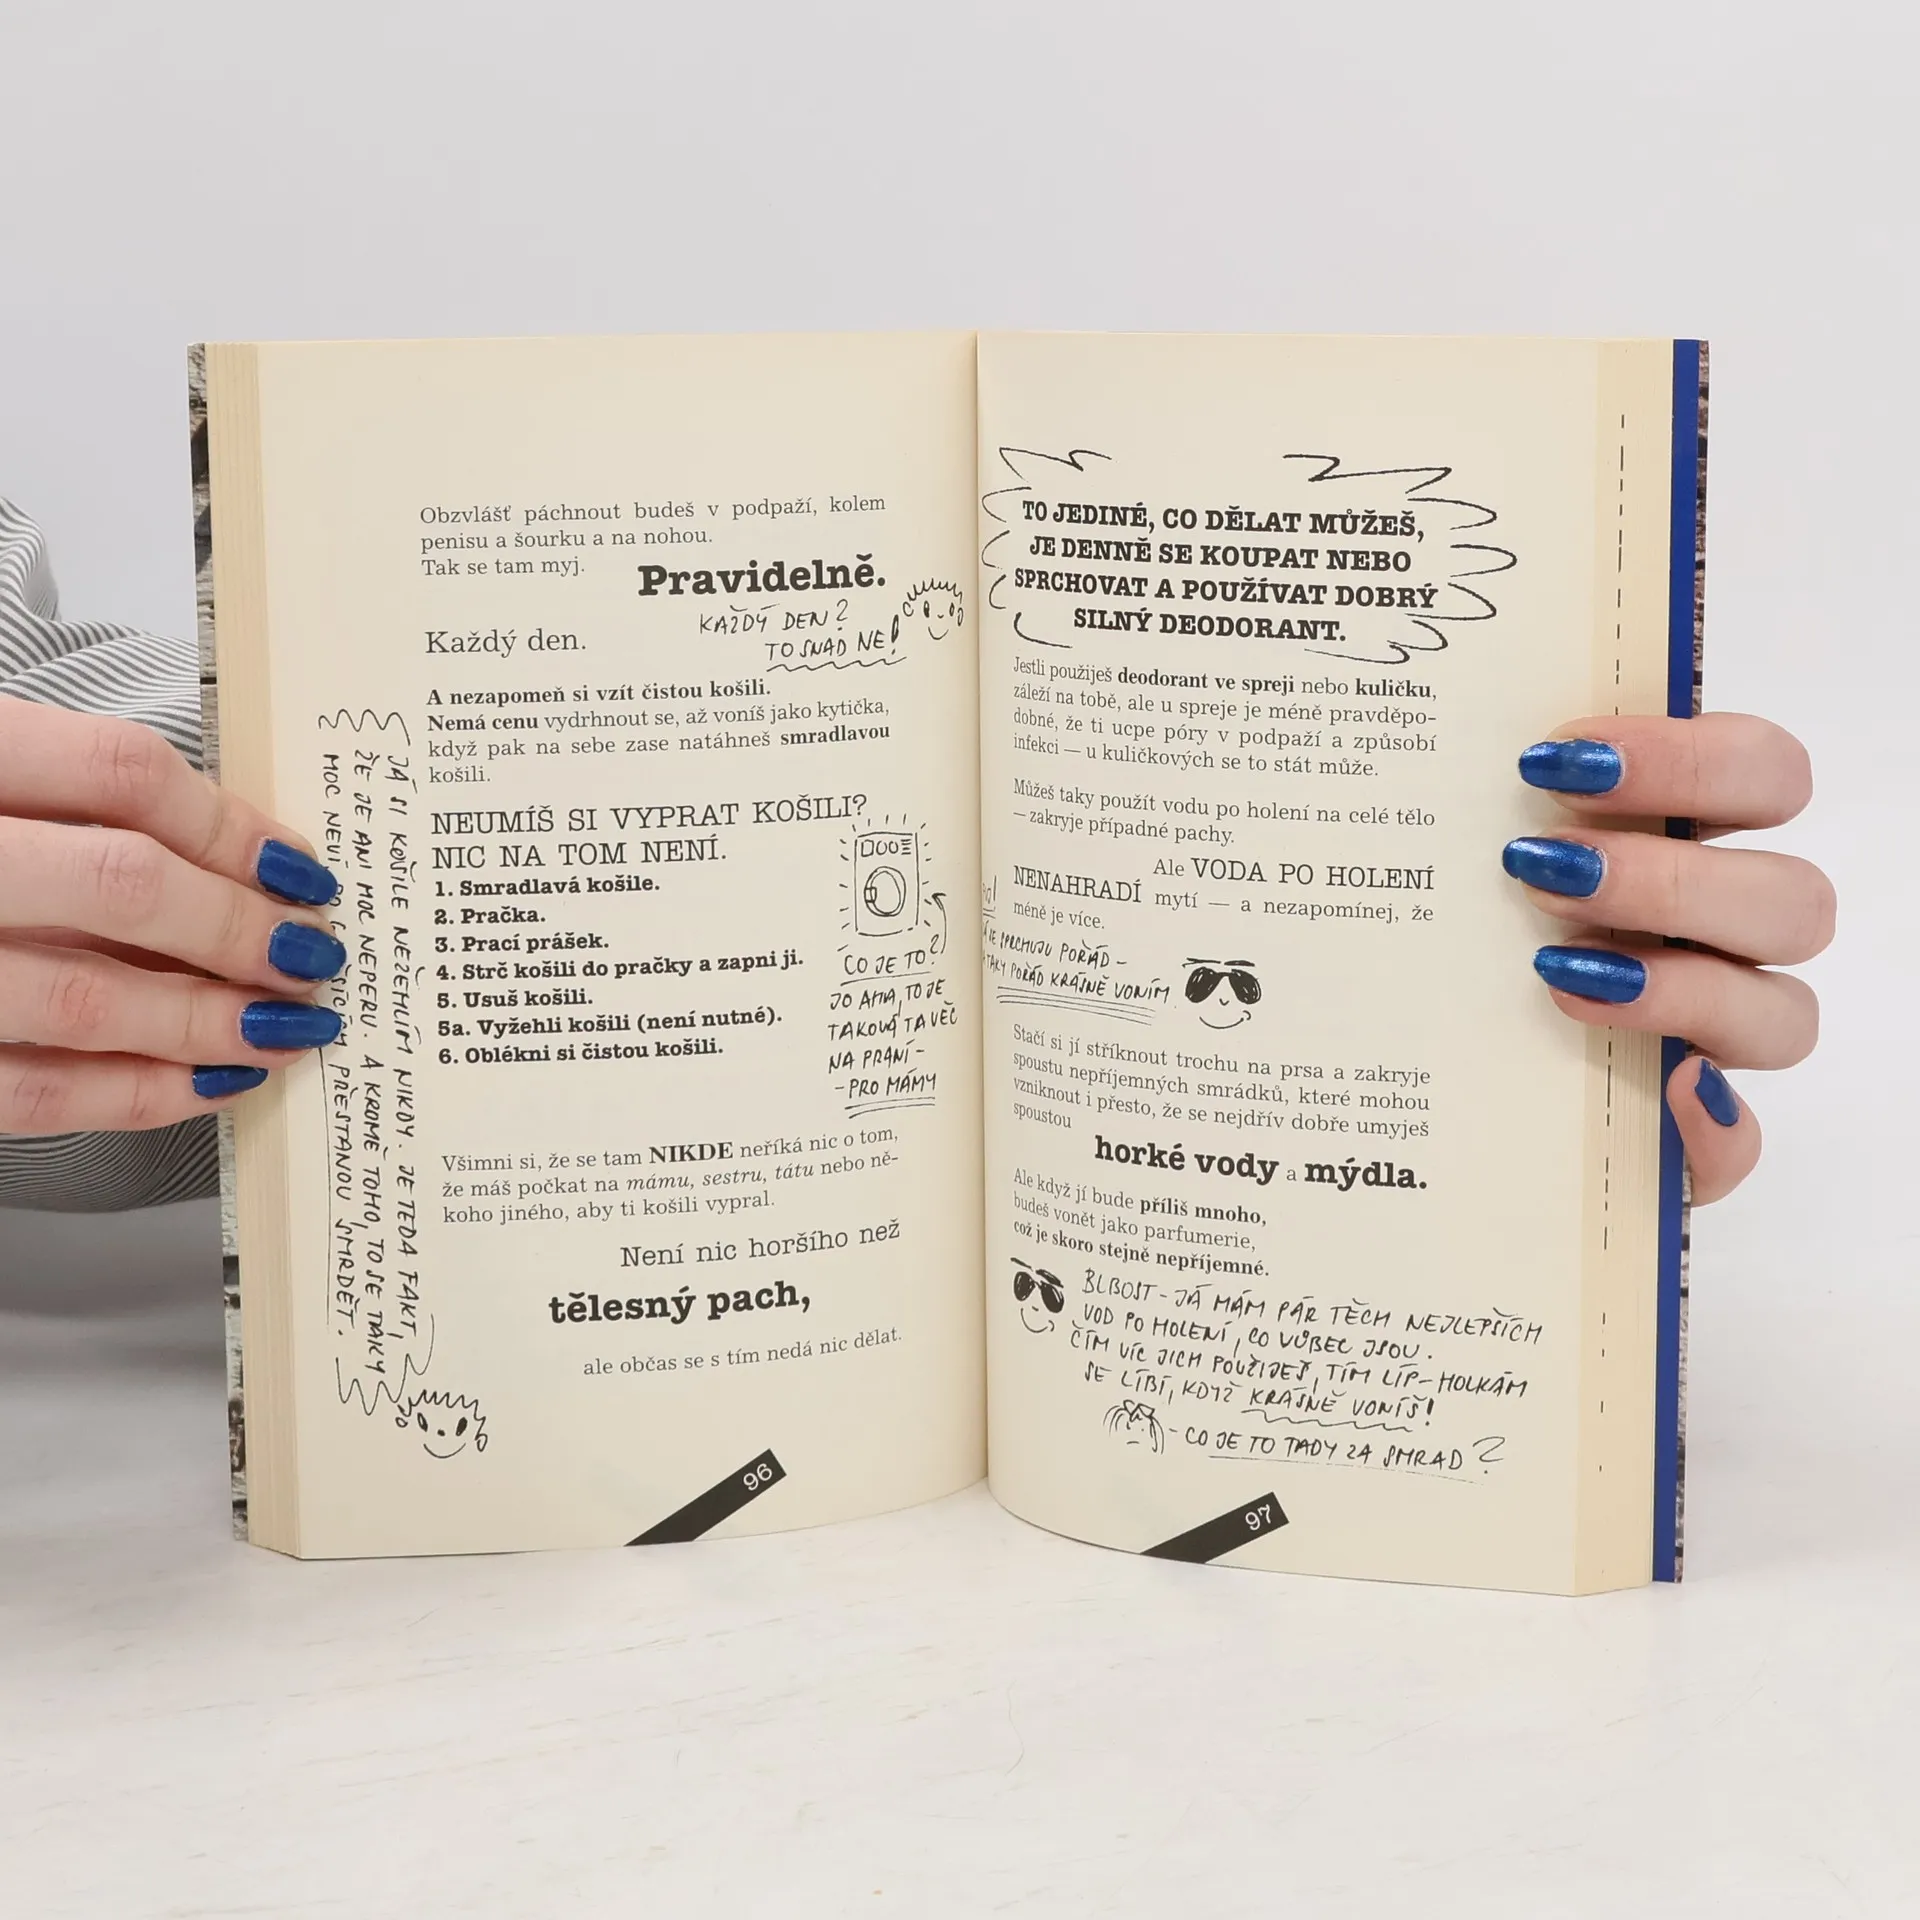 Obzvlášť páchnout budeš v podpaží, kolem
penisu a šourku a na nohou.
Tak se tam myj.
Pravidelně.
KAŽDÝ DEN?
TO SNAD NE!
Každý den.
A nezapomeň si vzít čistou košili.
Nemá cenu vydrhnout se, až voníš jako kytička,
když pak na sebe zase natáhneš smradlavou
košili.
NEUMÍŠ SI VYPRAT KOŠILI?
NIC NA TOM NENÍ.
1. Smradlavá košile.
2. Pračka.
3. Prací prášek.
4. Strč košili do pračky a zapni ji.
5. Usuš košili.
5a. Vyžehli košili (není nutné).
6. Oblékni si čistou košili.
CO JE TO?
JO AHA, TO JE
TAKOVÁ TA VĚC
NA PRANÍ -
- PRO MÁMY
JÁ SI KOŠILE NEŽEHLÍM NIKDY. JE TEDA FAKT,
ŽE JE ANI MOC NEPERU. A KROMĚ TOHO, TO SE TAKY
MOC NEVÍ PŘESTANOU SMRDĚT.
Všimni si, že se tam NIKDE neříká nic o tom,
že máš počkat na mámu, sestru, tátu nebo ně-
koho jiného, aby ti košili vypral.
Není nic horšího než
tělesný pach,
ale občas se s tím nedá nic dělat.
96
TO JEDINÉ, CO DĚLAT MŮŽEŠ,
JE DENNĚ SE KOUPAT NEBO
SPRCHOVAT A POUŽÍVAT DOBRÝ
SILNÝ DEODORANT.
Jestli použiješ deodorant ve spreji nebo kuličku,
záleží na tobě, ale u spreje je méně pravděpo-
dobné, že ti ucpe póry v podpaží a způsobí
infekci — u kuličkových se to stát může.
Můžeš taky použít vodu po holení na celé tělo
— zakryje případné pachy.
Ale VODA PO HOLENÍ
NENAHRADÍ mytí — a nezapomínej, že
méně je více.
SE SPRCHUJU POŘÁD -
TAKY POŘÁD KRÁSNĚ VONÍM
Stačí si jí stříknout trochu na prsa a zakryje
spoustu nepříjemných smrádků, které mohou
vzniknout i přesto, že se nejdřív dobře umyješ
spoustou
horké vody a mýdla.
Ale když jí bude příliš mnoho,
budeš vonět jako parfumerie,
což je skoro stejně nepříjemné.
BLBOST - JÁ MÁM PÁR TĚCH NEJLEPŠÍCH
VOD PO HOLENÍ, CO VŮBEC JSOU.
ČÍM VÍC JICH POUŽIJEŠ, TÍM LÍP - HOLKÁM
SE LÍBÍ, KDYŽ KRÁSNĚ VONÍŠ!
- CO JE TO TADY ZA SMRAD?
97